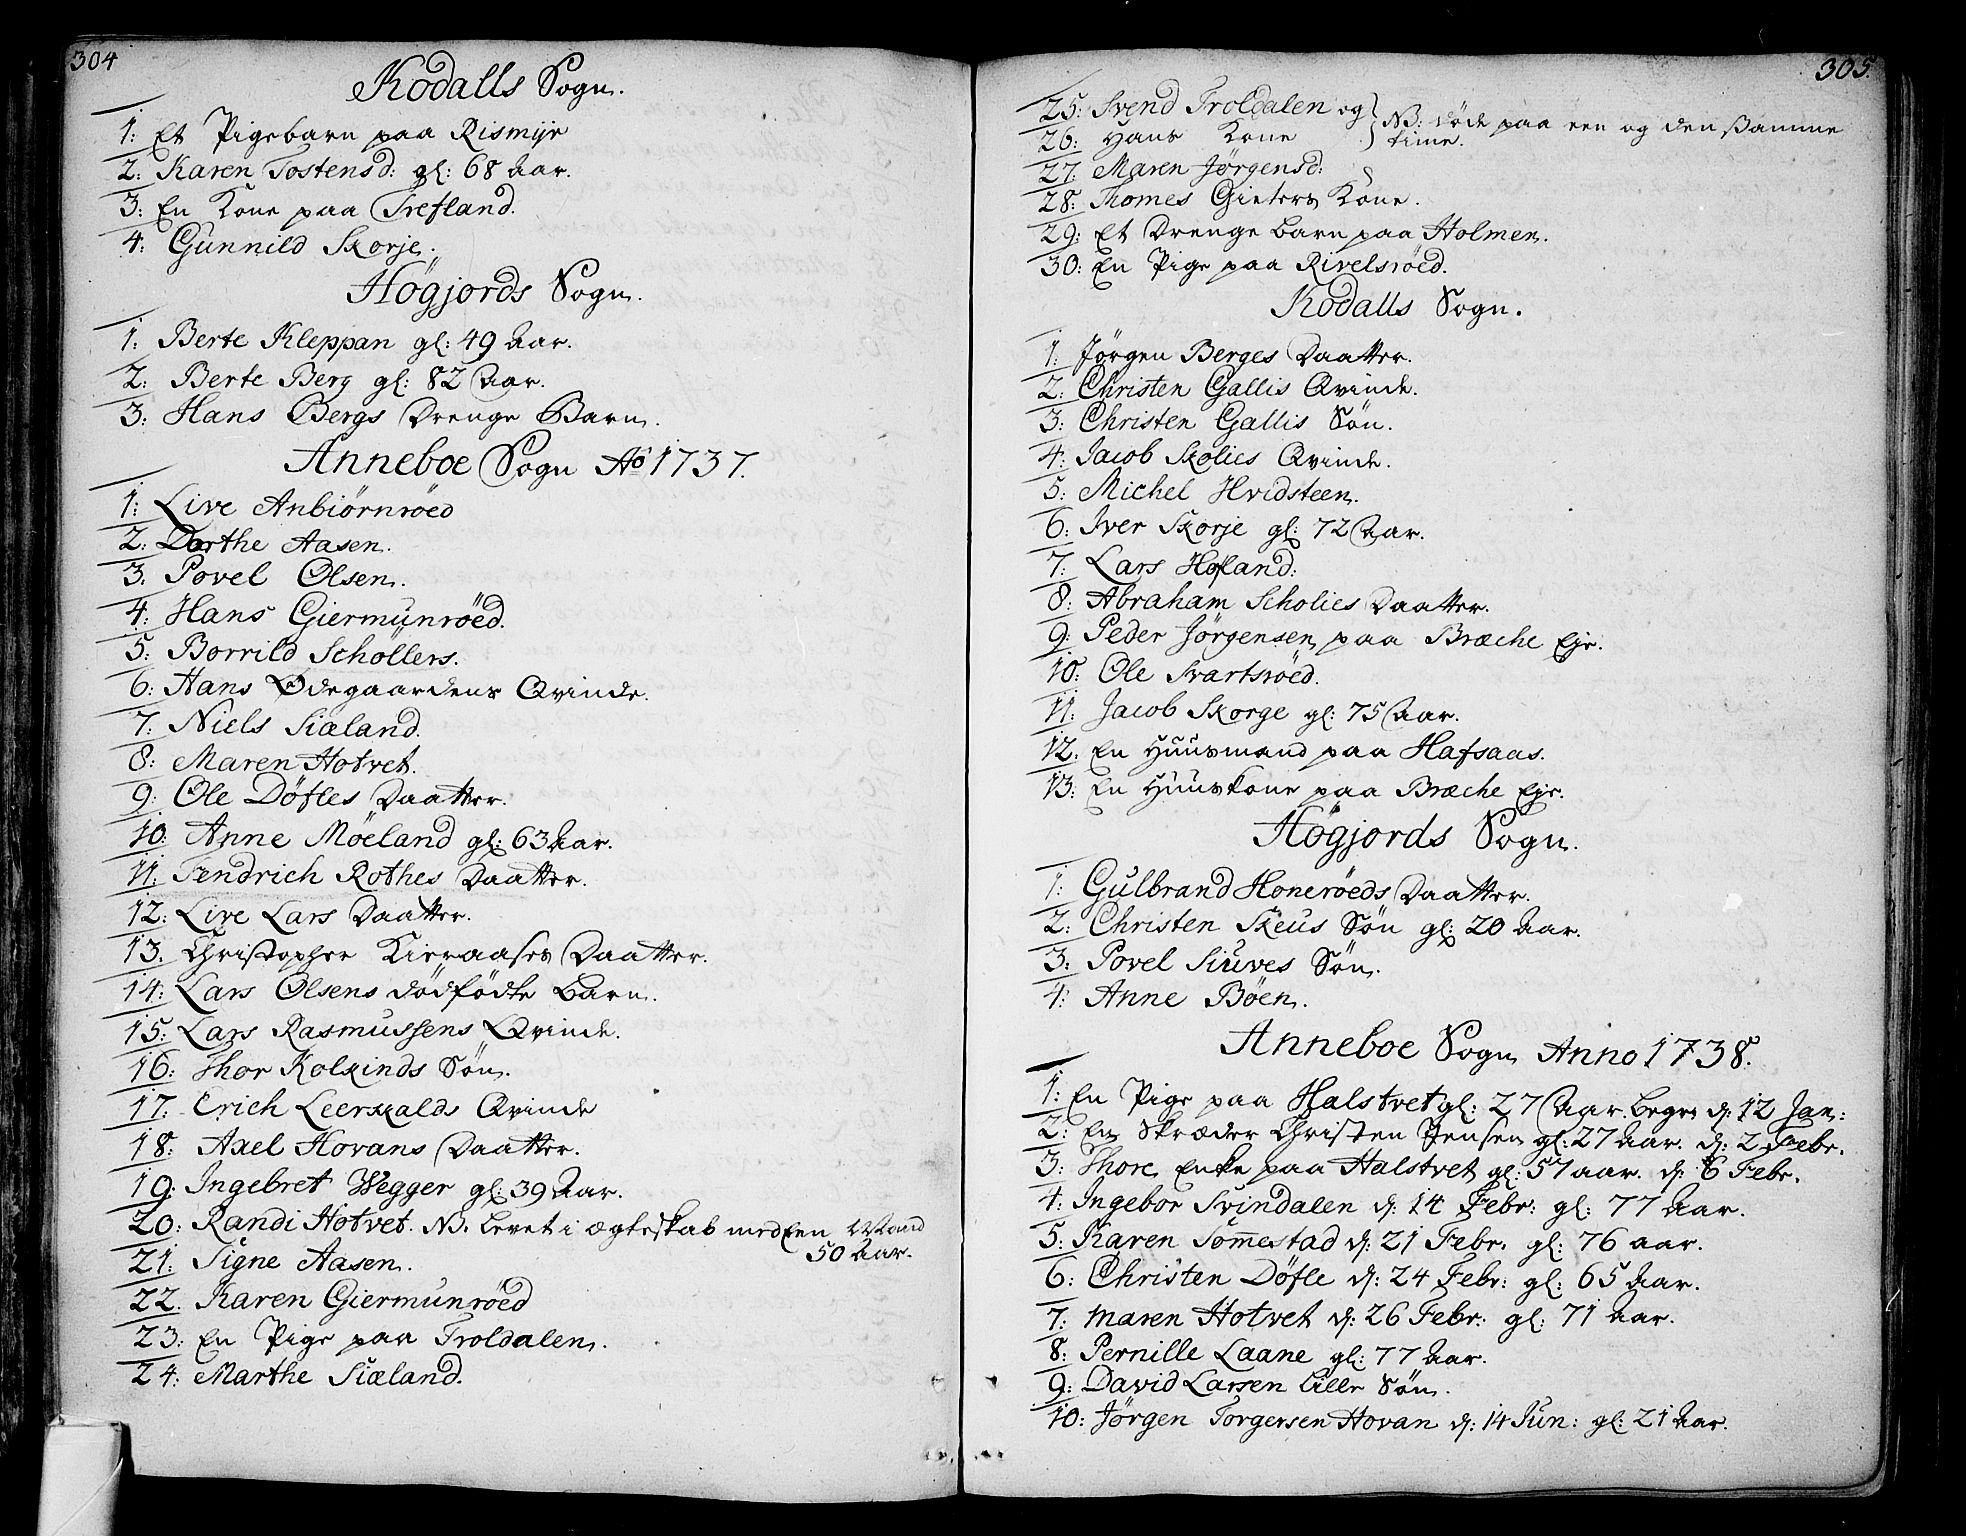 304
Kodalls Sogn.
1: Et Pigebarn paa Rismyr
2: Karen Tostensd: gl: 68 Aar.
3: En Kone paa Trefland.
4: Gunnild Skorje.
Högjords Sogn.
1. Berte Kleppan gl: 49 Aar.
2: Berte Berg gl: 82 Aar.
3: Hans Bergs Drenge Barn.
Anneboe Sogn Ao 1737.
1: Live Anbiörnröed
2: Dorthe Aasen.
3. Povel Olsen.
4: Hans Giermunröed.
5: Borrild Schöllers.
6: Hans Ødegaardens Qvinde.
7: Niels Siæland.
8: Maren Hotvet.
9: Ole Döfles Daatter.
10: Anne Möeland gl: 63 Aar.
11: Fendrich Rothes Daatter.
12: Live Lars Daatter.
13. Christopher Kieraases Daatter.
14: Lars Olsens dödfödte Barn.
15: Lars Rasmussens Qvinde.
16: Thor Kolkinds Sön.
17: Erich Leerkalds Qvinde
18: Axel Hovans Daatter.
19: Ingebret Wegger gl: 39 Aar.
20: Randi Hotvet. NB. levet i ægteskab med Een Mand
50 Aar.
21: Signe Aasen.
22. Karen Giermunröed
23: En Pige paa Troldalen.
24: Marthe Siæland.
305.
25: Svend Troldalen og } NB: döde paa een og den ßamme
26: Hans Kone } time.
27: Maren Jörgensd:
28: Thomes Gieters Kone.
29: Et Drenge barn paa Holmen.
30: En Pige paa Rivelsröed.
Kodalls Sogn.
1: Jörgen Berges Daatter.
2: Christen Gallis Qvinde.
3: Christen Gallis Sön.
4: Jacob Skolies Qvinde.
5: Michel Hvidsteen.
6: Iver Skorje gl: 72 Aar.
7: Lars Hofland:
8: Abraham Scholies Daatter.
9: Peder Jörgensen paa Bræche Eje.
10: Ole Svartsröed.
11: Jacob Skorge gl: 75 Aar.
12: En Huusmand paa Hafsaas.
13: En Huuskone paa Bræche Eje.
Högjords Sogn.
1: Gulbrand Honeröeds Daatter.
2: Christen Skeus Sön gl: 20 Aar.
3: Povel Siuves Sön.
4: Anne Böen.
Anneboe Sogn Anno 1738.
1: En Pige paa Halstvet gl: 27 Aar. begr: d: 12 Jan:
2: En Skræder Christen Jensen gl: 27 Aar. d: 2 Febr.
3: Thore Enke paa Halstvet gl: 57 aar. d: 6 Febr.
4: Ingebor Svindalen d: 14 Febr: gl: 77 Aar.
5: Karen Tom̅estad d: 21 Febr. gl: 76 aar.
6: Christen Döfle d: 24 Febr: gl: 65 Aar.
7: Maren Hotvet d: 26 Febr: gl: 71 Aar.
8: Pernille Laane gl: 77 Aar.
9: David Larsen lille Sön.
10: Jörgen Torgersen Hovan d: 14 Jun: gl: 21 Aar.